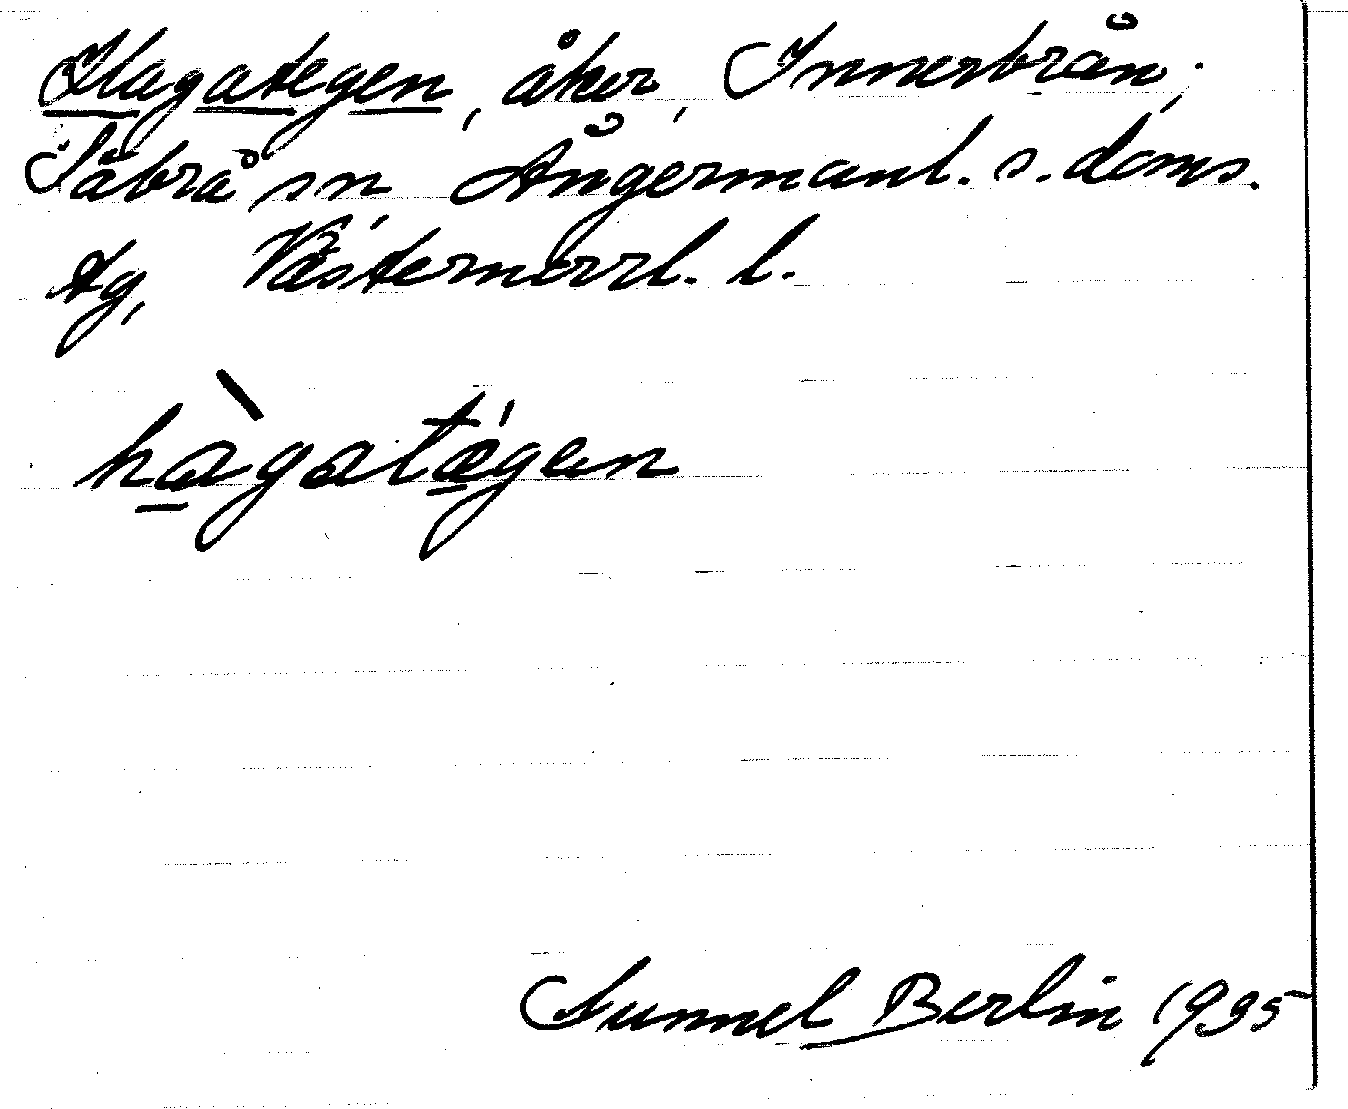 Hagategen, åker, Innerbrån,
Säbrå sn, Ångermanl. s. doms.
tg, Västernorrl. l.
hàgatǽgen
Gunnel Berlin 1935